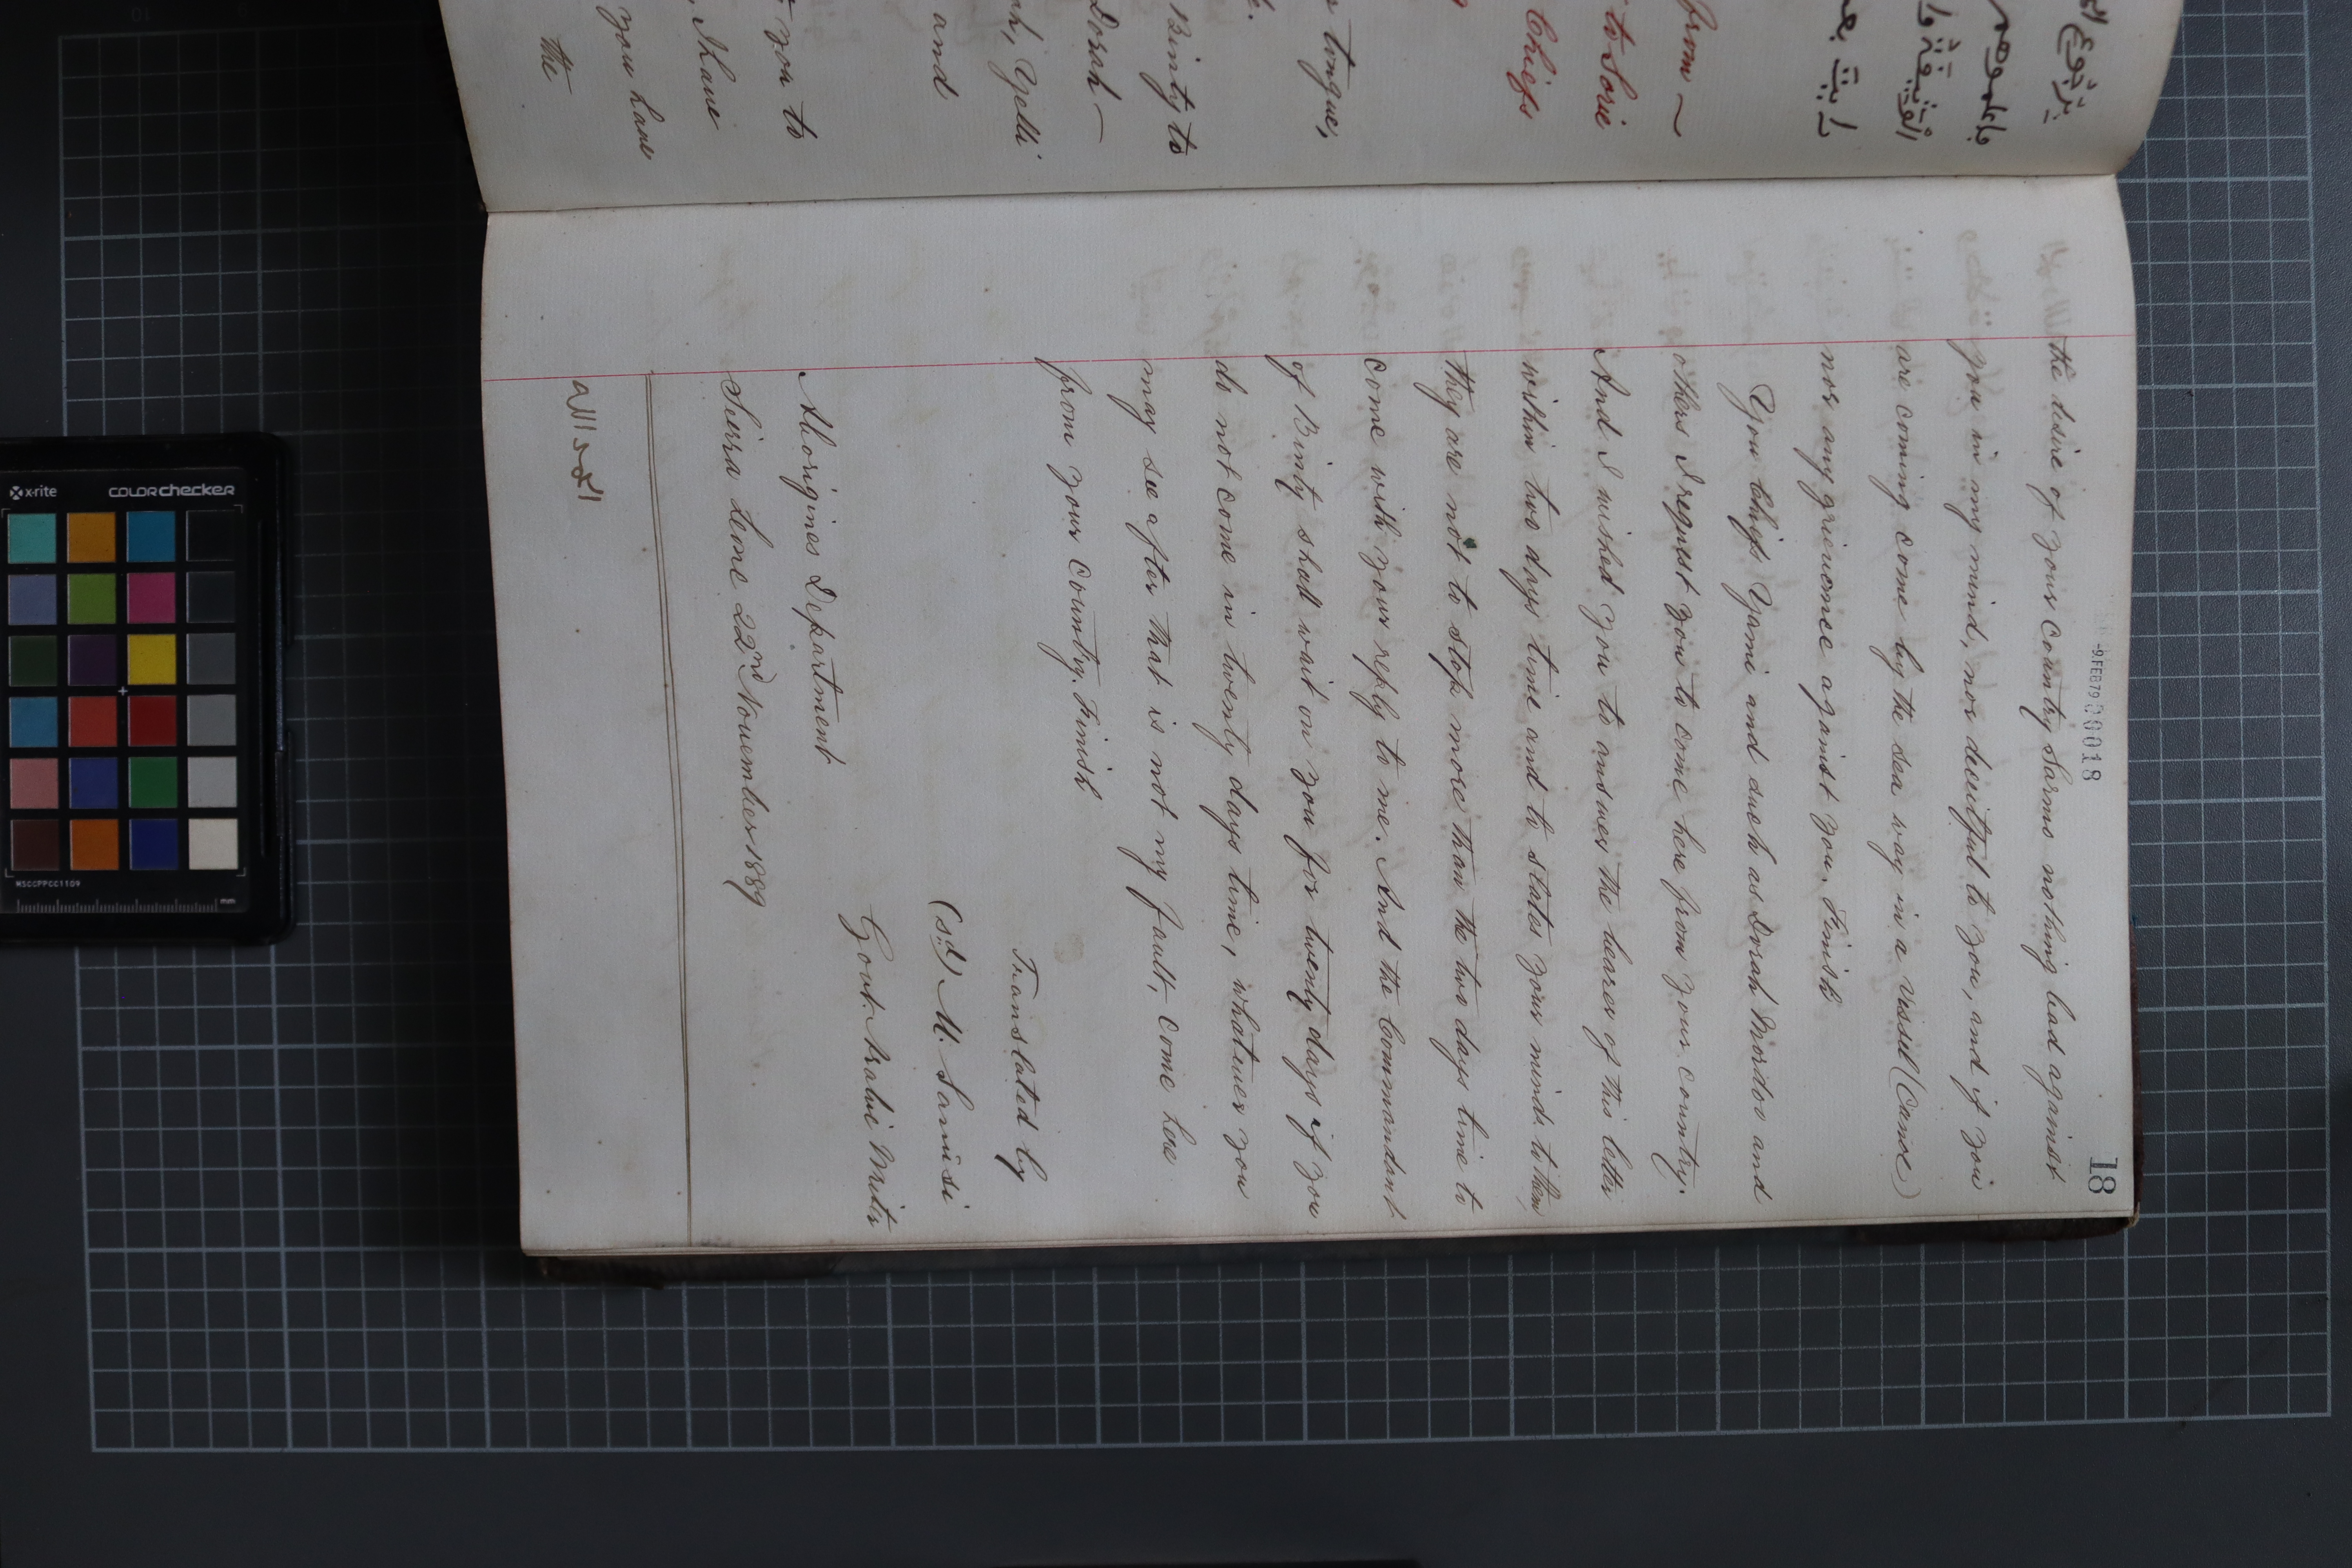 -9 FEB 79 000018
18
the desire of your Country Sarmo nothing bad against
you in my mind, nor deceitful to you, and if you
are coming come by the sea way in a vessel (Canoe)
nor any grievance against you. Finish
You Chiefs Yami and such as Dorah Mordoo and
others I request you to come here from your country.
And I wished you to answer the bearer of this letter
within two days time and to states your minds to them,
they are not to stop more than the two days time to
come with your reply to me. And the Commandant
of Binty shall wait on you for twenty days if you
do not come in twenty days time, whatever you
may see after that is not my fault, come here
from your country. Finish
Translated by
(sd) M. Sanusi
Govt. Arabic Writer
Aborigines Department
Sierra Leone 22nd November 1889
from ~
to Sorie
Chiefs
tongue,
Binty to
Dorah —
Yelli
and
you to
, I have
you have
the
x-rite
colorchecker
MSCCPPCC1109
mm